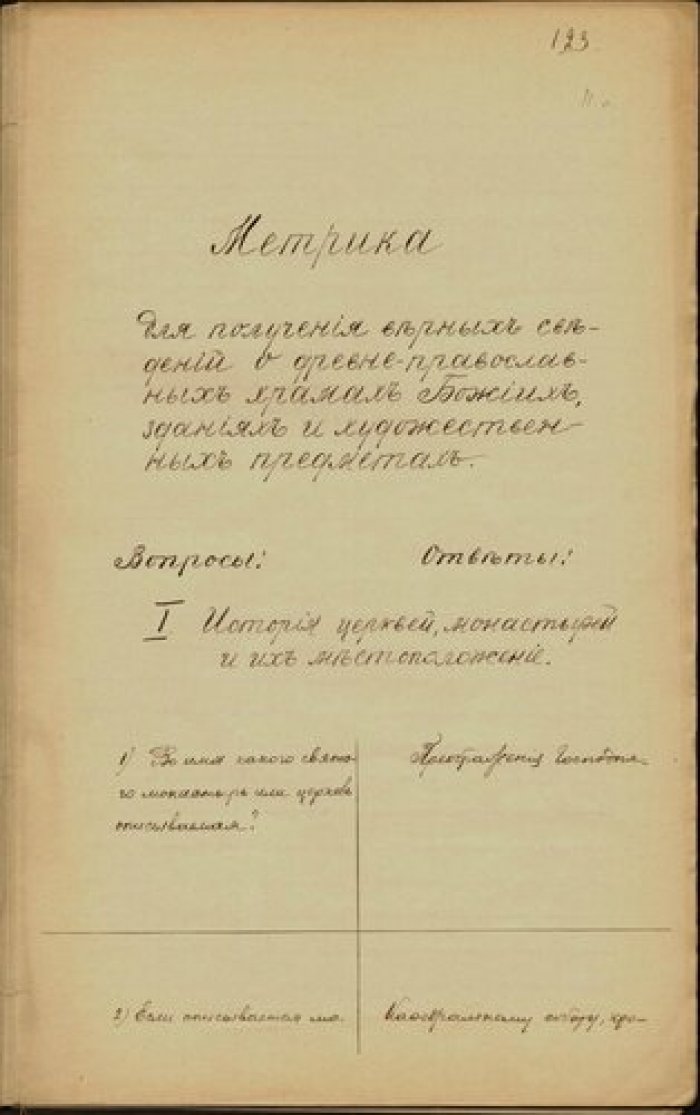 123
Метрика
для полученія вѣрныхъ свѣ-
деній о древне-православ-
ныхъ храмахъ Божіихъ,
зданіяхъ и художествен-
ныхъ предметахъ.
Вопросы: Отвѣты:
I. Исторія церквей, монастырей
и ихъ мѣстоположеніе.
1) Во имя какого свята-
го монастырь или церковь
описываемая?
Преображенія Господня.
2) Если описываемая
Каѳедральному собору,